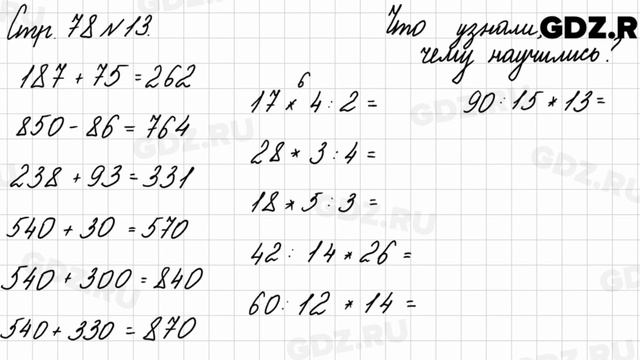 Стр. 78 № 13.
Что узнали,
чему научились?
GDZ.R
187 + 75 = 262
850 - 86 = 764
238 + 93 = 331
540 + 30 = 570
540 + 300 = 840
540 + 330 = 870
6
17 * 4 : 2 =
28 * 3 : 4 =
18 * 5 : 3 =
42 : 14 * 26 =
60 : 12 * 14 =
90 : 15 * 13 =
GDZ.RU
GDZ.RU
GDZ.RU
GDZ.RU
GDZ.RU